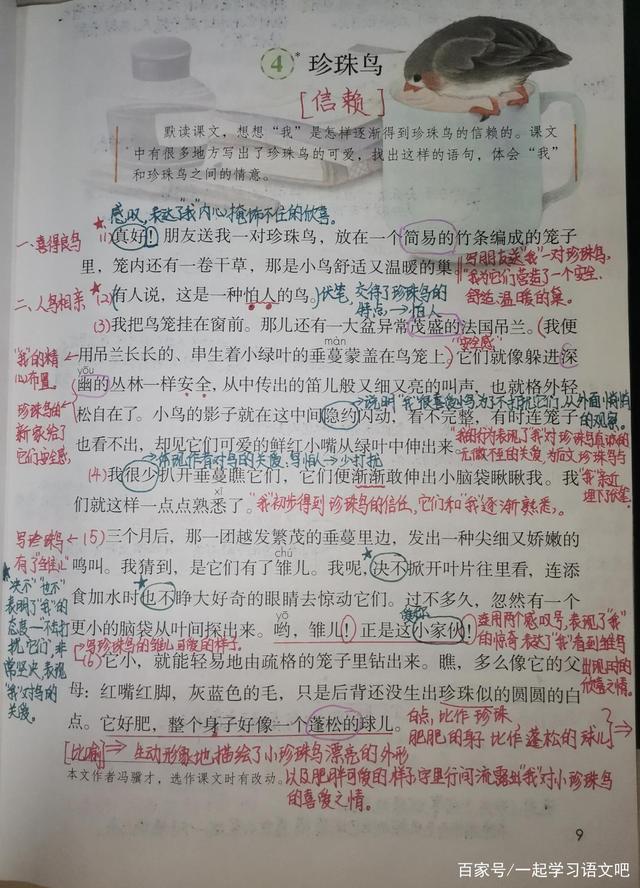 4* 珍珠鸟
[信赖]
默读课文，想想“我”是怎样逐渐得到珍珠鸟的信赖的。课文
中有很多地方写出了珍珠鸟的可爱，找出这样的语句，体会“我”
和珍珠鸟之间的情意。
感叹，表达了“我”内心掩饰不住的欣喜。
一、喜得良鸟
(1)真好！朋友送我一对珍珠鸟，放在一个简易的竹条编成的笼子
里，笼内还有一卷干草，那是小鸟舒适又温暖的巢。
写朋友送“我”一对珍珠鸟，
“我”为它们营造了一个安全、
舒适、温暖的巢。
二、人鸟相亲
(2)有人说，这是一种怕人的鸟。
伏笔，交待了珍珠鸟的
特点→怕人
(3)我把鸟笼挂在窗前。那儿还有一大盆异常茂盛的法国吊兰。(我便
“安全感”
màn
“我”的精
心布置。
用吊兰长长的、串生着小绿叶的垂蔓蒙盖在鸟笼上)它们就像躲进深
yōu
幽的丛林一样安全，从中传出的笛儿般又细又亮的叫声，也就格外轻
珍珠鸟的
新家给了
它们安全感。
松自在了。小鸟的影子就在这中间隐约闪动，看不完整，有时连笼子
也看不出，却见它们可爱的鲜红小嘴从绿叶中伸出来。
(4)我很少扒开垂蔓瞧它们，它们便渐渐敢伸出小脑袋瞅瞅我。我
xī
们就这样一点点熟悉了。
“我”初步得到珍珠鸟的信任，它们和“我”逐渐熟悉。
写珍珠鸟
有了“雏儿”
(5)三个月后，那一团越发繁茂的垂蔓里边，发出一种尖细又娇嫩的
chú
鸣叫。我猜到，是它们有了雏儿。我呢，决不掀开叶片往里看，连添
食加水时也不睁大好奇的眼睛去惊动它们。过不多久，忽然有一个
yō
更小的脑袋从叶间探出来。哟，雏儿！正是这小家伙！
“决不”“也不”
表明了“我”的
态度——不去打
扰它们，非
常坚决，表现
“我”对鸟的
关爱。
连用两个感叹号，表现了“我”
的惊奇，表达了“我”看到雏鸟
出现时的
欣喜之情。
写珍珠鸟的雏儿可爱的样子。
(6)它小，就能轻易地由疏格的笼子里钻出来。瞧，多么像它的父
母：红嘴红脚，灰蓝色的毛，只是后背还没生出珍珠似的圆圆的白
点。它好肥，整个身子好像一个蓬松的球儿。
白点，比作珍珠，
肥肥的身子比作蓬松的球儿
[比喻]→生动形象地描绘了小珍珠鸟漂亮的外形
以及肥胖可爱的样子，字里行间流露出“我”对小珍珠鸟
的喜爱之情。
本文作者冯骥才，选作课文时有改动。
9
百家号/一起学习语文吧